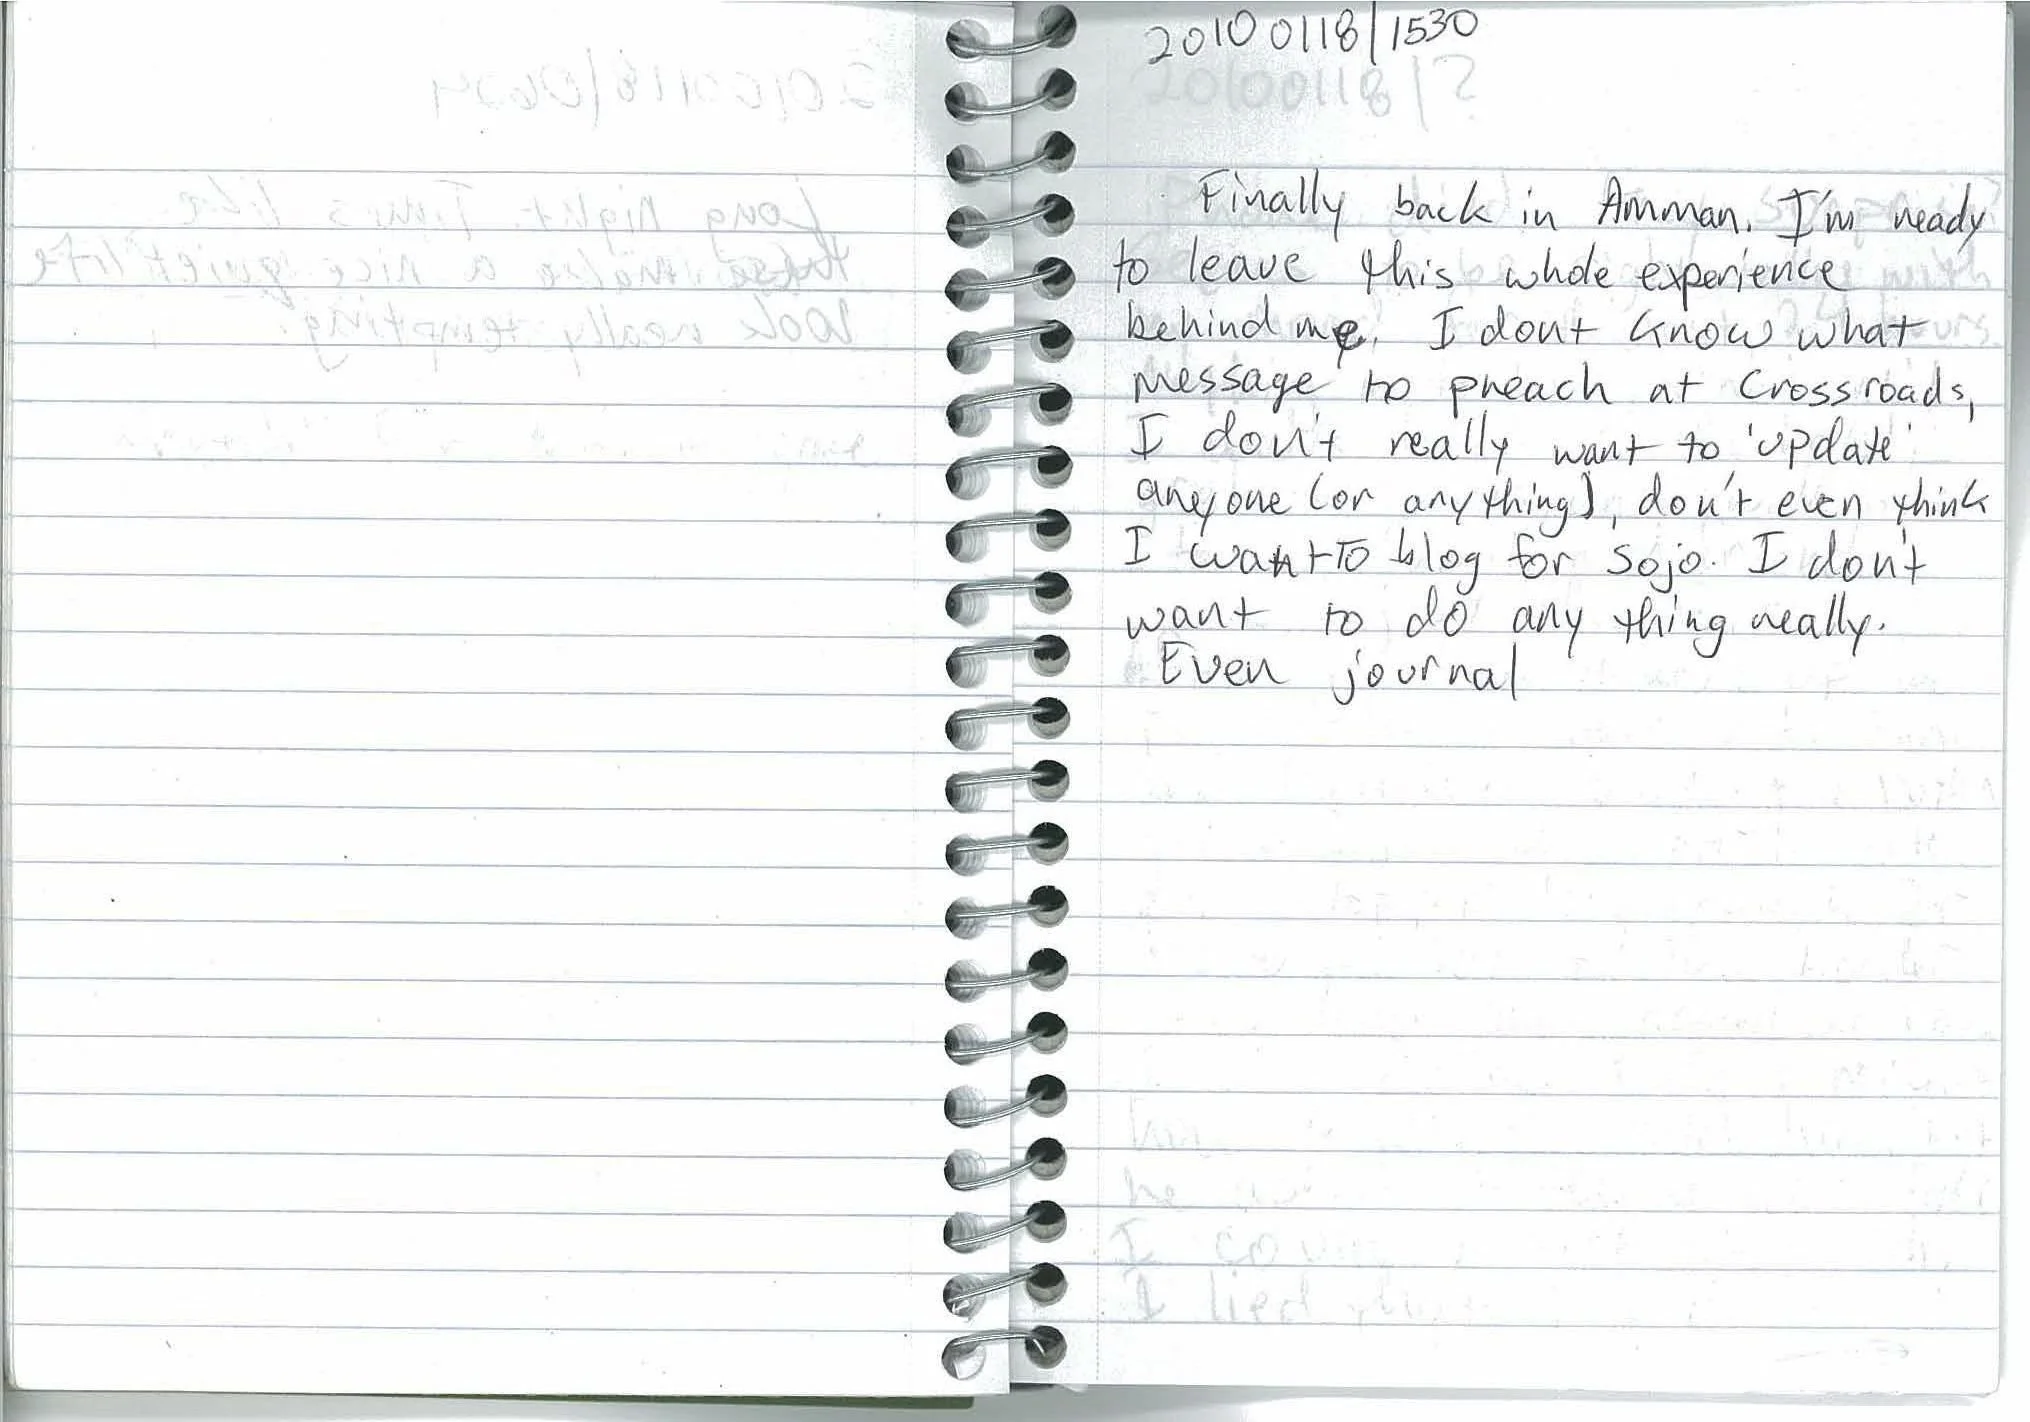 20100118/1530
Finally back in Amman. I'm ready
to leave this whole experience
behind me. I dont know what
message to preach at Crossroads,
I don't really want to 'update'
anyone (or anything), don't even think
I want to blog for Sojo. I don't
want to do any thing really.
Even journal